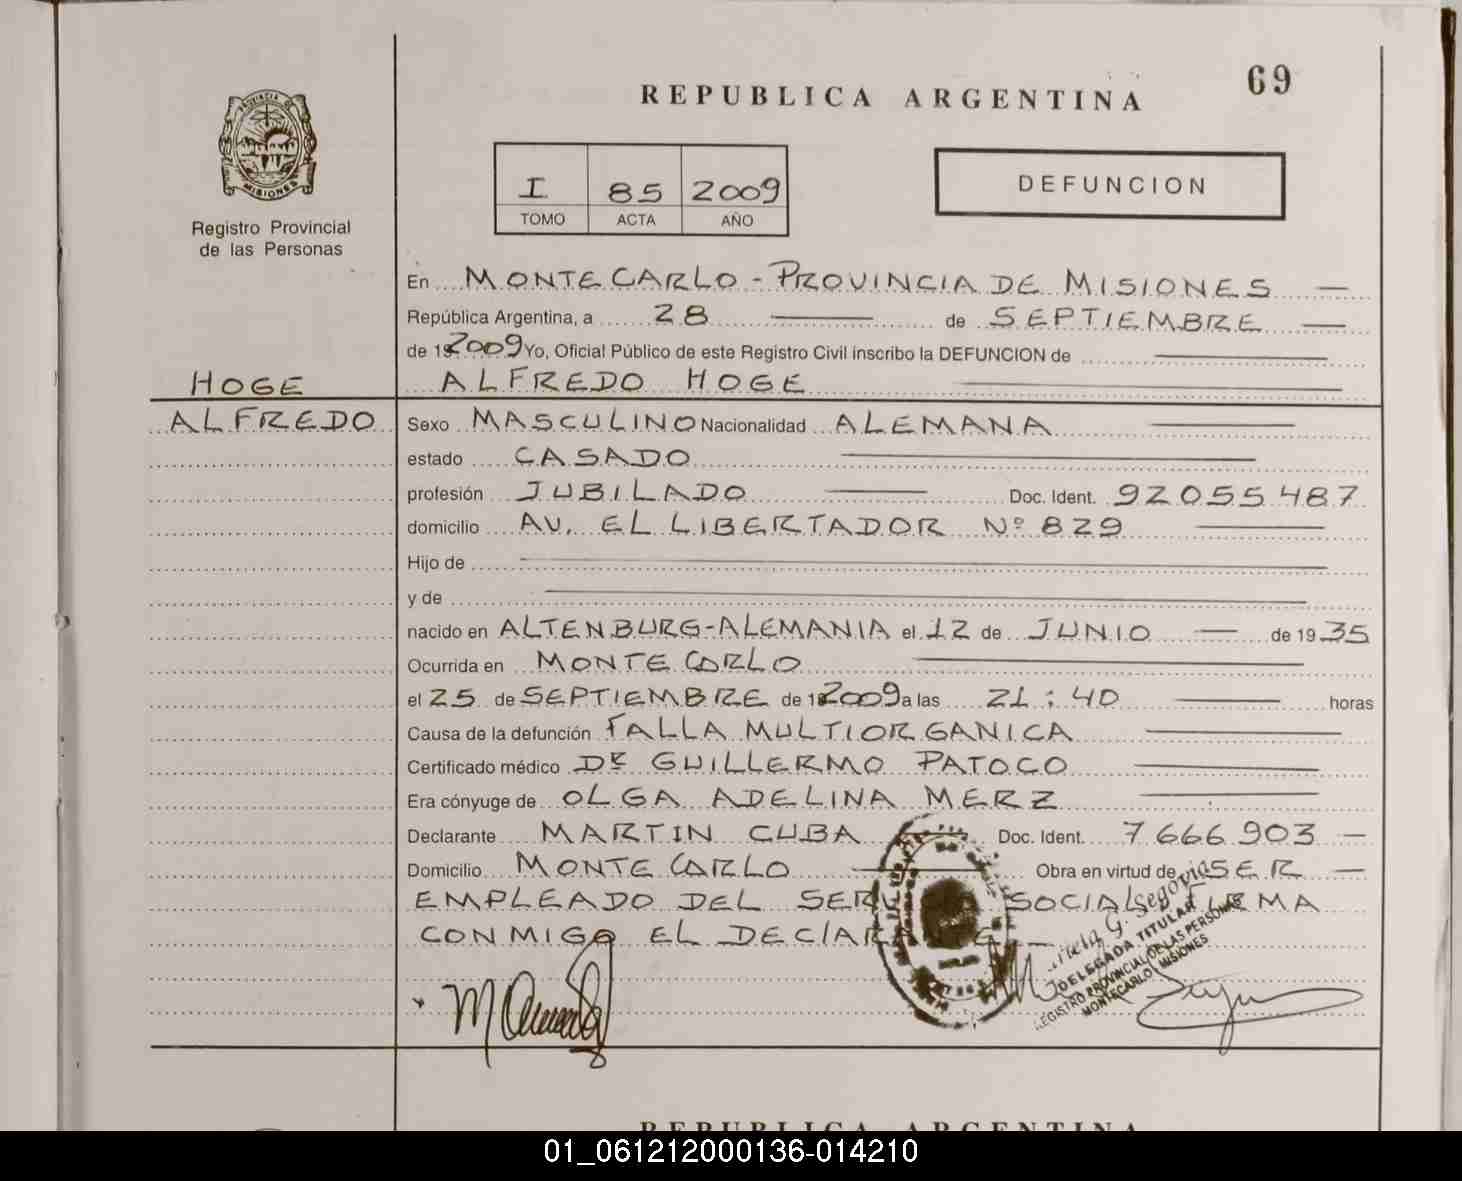 69
REPUBLICA ARGENTINA
PROVINCIA DE
MISIONES
Registro Provincial
de las Personas
I 85 2009
TOMO ACTA AÑO
DEFUNCION
En MONTECARLO - PROVINCIA DE MISIONES —
República Argentina, a 28 — de SEPTIEMBRE —
de 192009 Yo, Oficial Público de este Registro Civil inscribo la DEFUNCION de —
HOGE ALFREDO HOGE —
ALFREDO Sexo MASCULINO Nacionalidad ALEMANA —
estado CASADO —
profesión JUBILADO — Doc. Ident. 92055487
domicilio AV. EL LIBERTADOR Nº 829 —
Hijo de —
y de —
nacido en ALTENBURG-ALEMANIA el 12 de JUNIO — de 1935
Ocurrida en MONTECARLO —
el 25 de SEPTIEMBRE de 192009 a las 21:40 — horas
Causa de la defunción FALLA MULTIORGANICA —
Certificado médico DR GUILLERMO PATOCO —
Era cónyuge de OLGA ADELINA MERZ —
Declarante MARTIN CUBA Doc. Ident. 7666903 —
Domicilio MONTECARLO — Obra en virtud de SER —
EMPLEADO DEL SER SOCIAL FIRMA
CONMIGO EL DECLARA
G. Segovia
DELEGADA TITULAR
REGISTRO PROVINCIAL DE LAS PERSONAS
MONTECARLO - MISIONES
REPUBLICA ARGENTINA
01_061212000136-014210